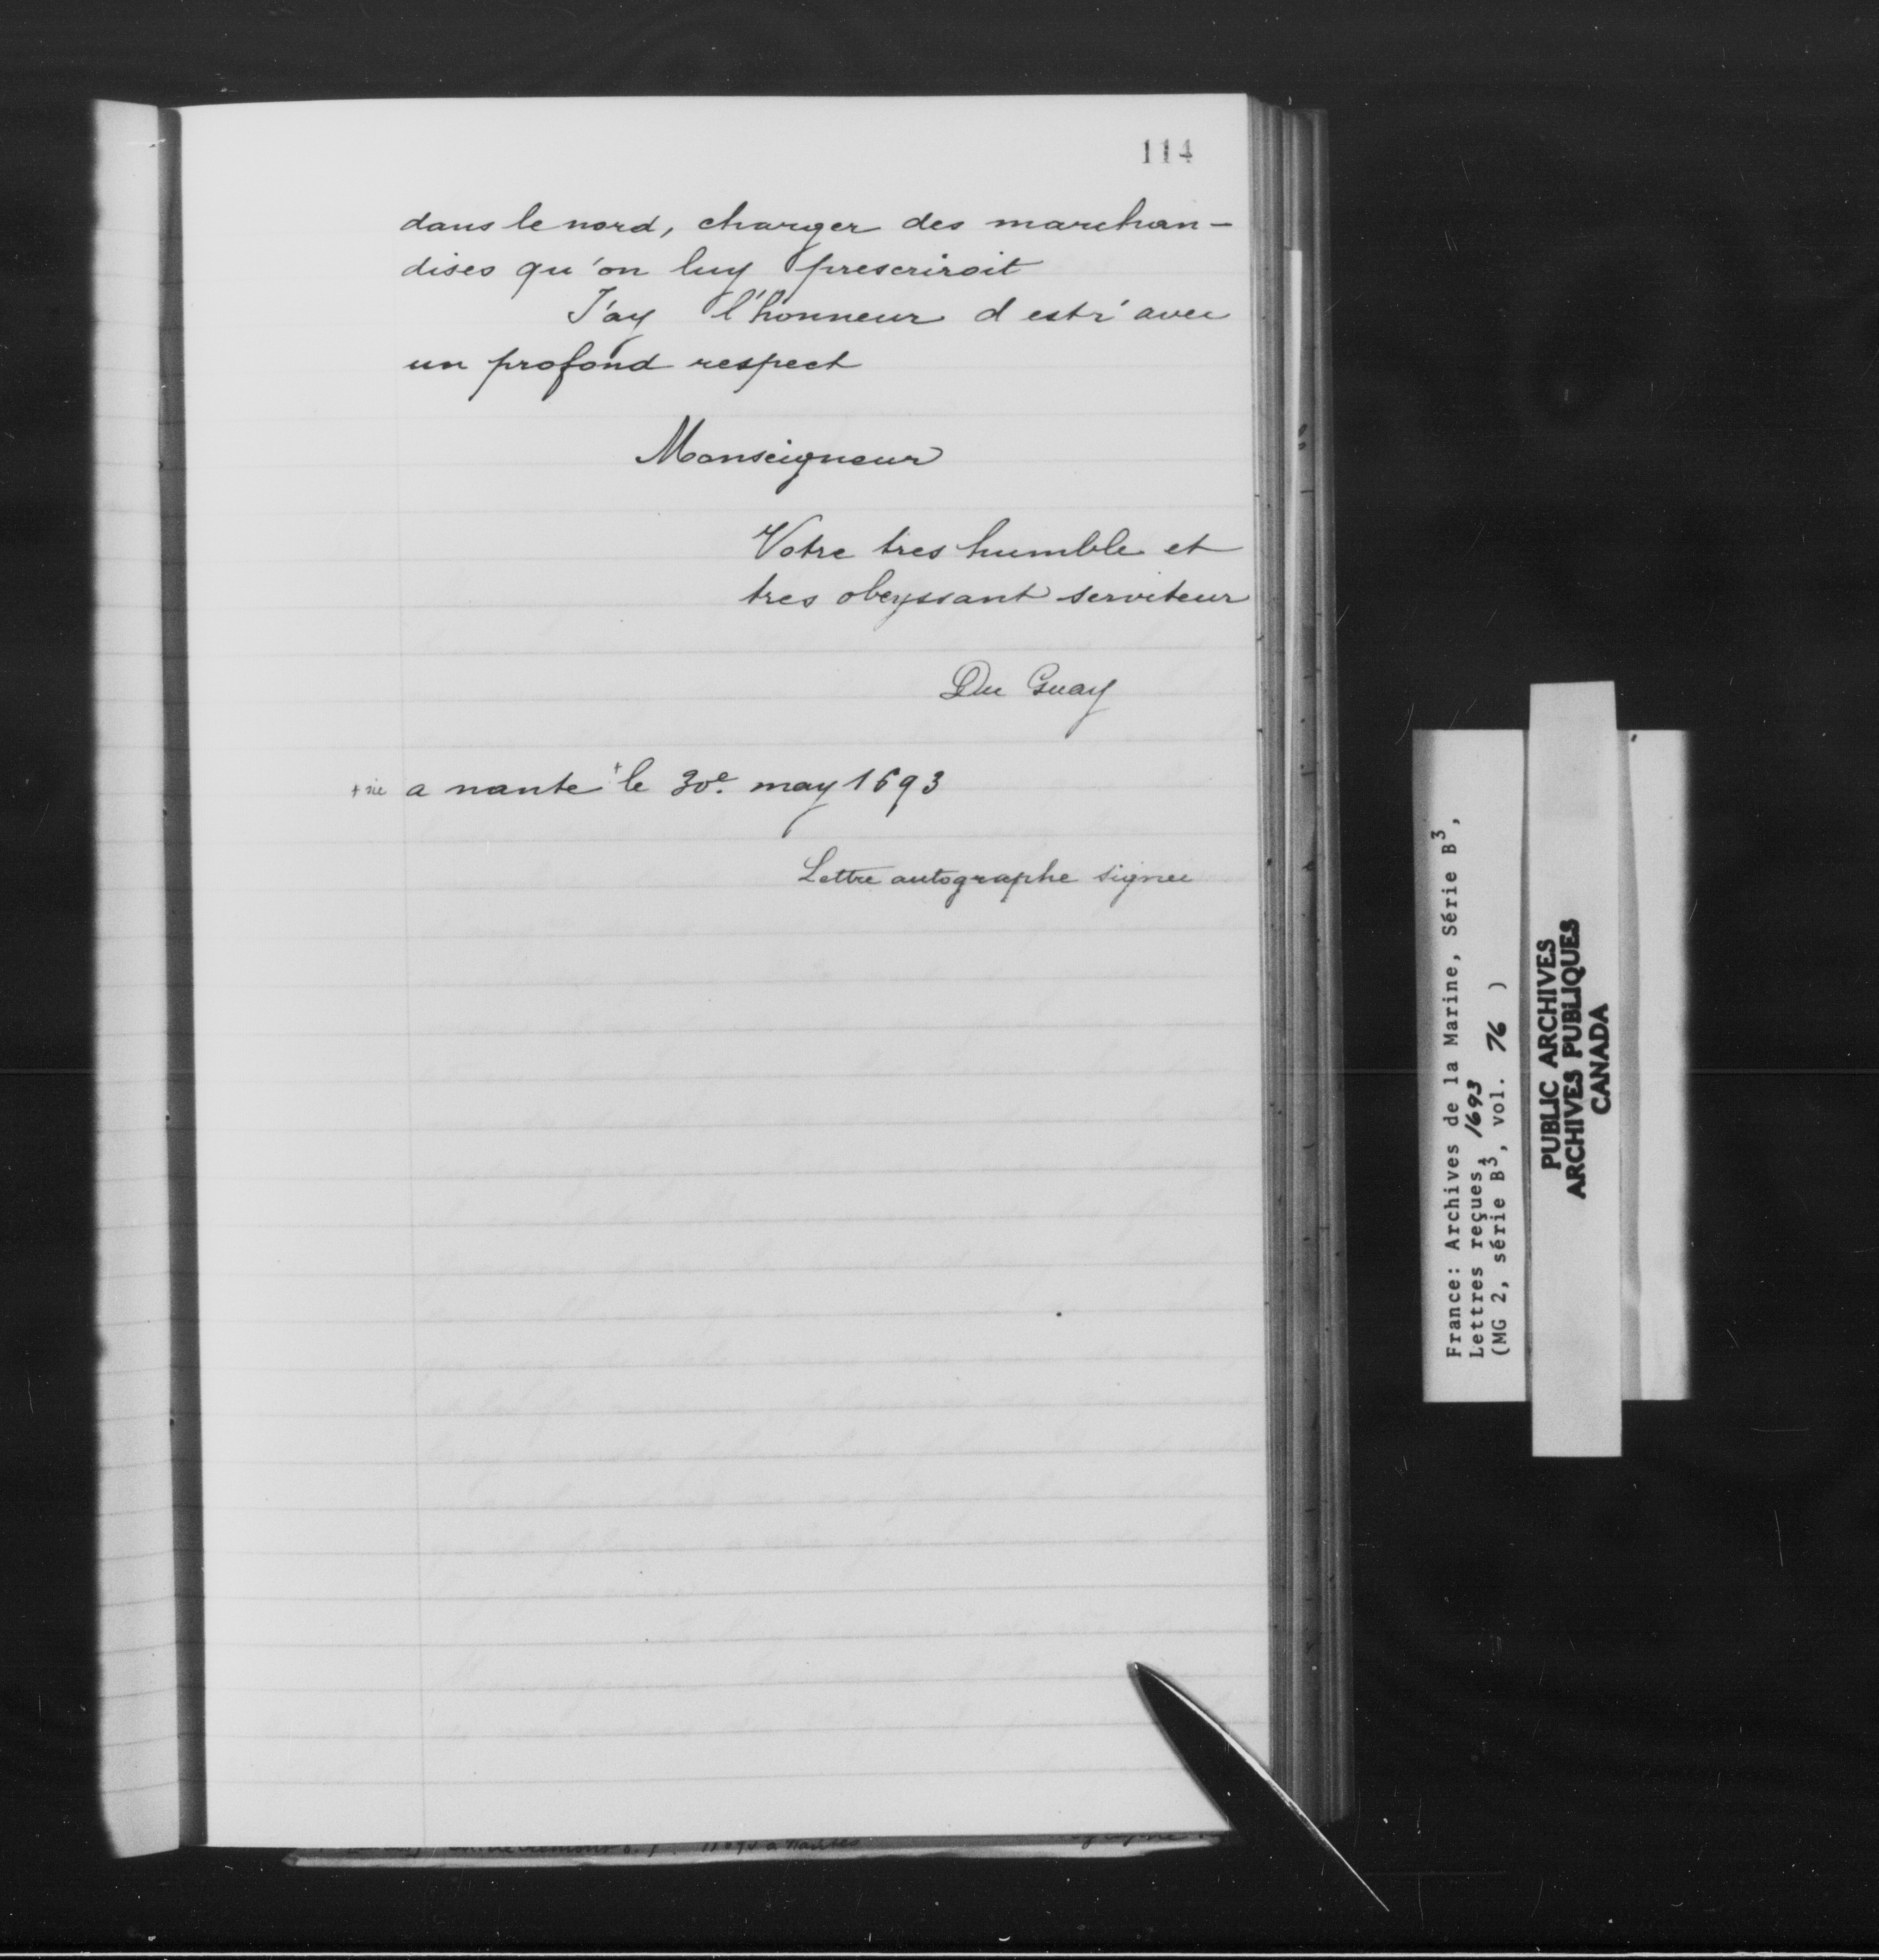 114
dans le nord, charger des marchan-
dises qu'on luy prescriroit
J'ay l'honneur d estr' avec
un profond respect
Monseigneur
Votre tres humble et
tres obeyssant serviteur
Du Guay
+ sic a nante + le 30e. may 1693
Lettre autographe signee
France: Archives de la Marine, Série B3,
Lettres reçues, 1693
(MG 2, série B3, vol. 76 )
PUBLIC ARCHIVES
ARCHIVES PUBLIQUES
CANADA